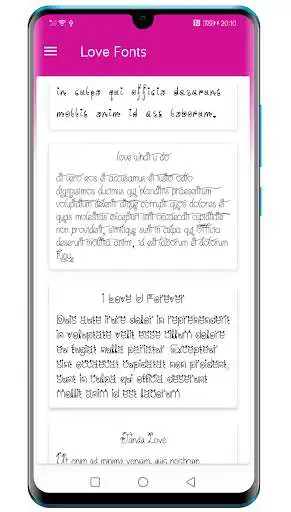 20:10
Love Fonts
in culpa qui officia deserunt
mollit anim id est laborum.
love what u do
At vero eos et accusamus et iusto odio
dignissimos ducimus qui blanditiis praesentium
voluptatum deleniti atque corrupti quos dolores et
quas molestias excepturi sint occaecati cupiditate
non provident, similique sunt in culpa qui officia
deserunt mollitia animi, id est laborum et dolorum
fuga.
I Love U Forever
Duis aute irure dolor in reprehenderit
in voluptate velit esse cillum dolore
eu fugiat nulla pariatur. Excepteur
sint occaecat cupidatat non proident,
sunt in culpa qui officia deserunt
mollit anim id est laborum
Janda Love
Ut enim ad minima veniam, quis nostrum